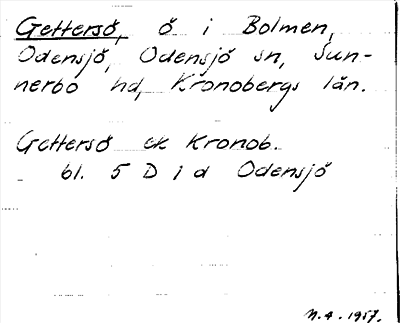 Gettersö, ö i Bolmen,
Odensjö, Odensjö sn, Sun-
nerbo hd, Kronobergs län.
Gettersö ek Kronob.
bl. 5 D 1 d Odensjö
N.4.1957.